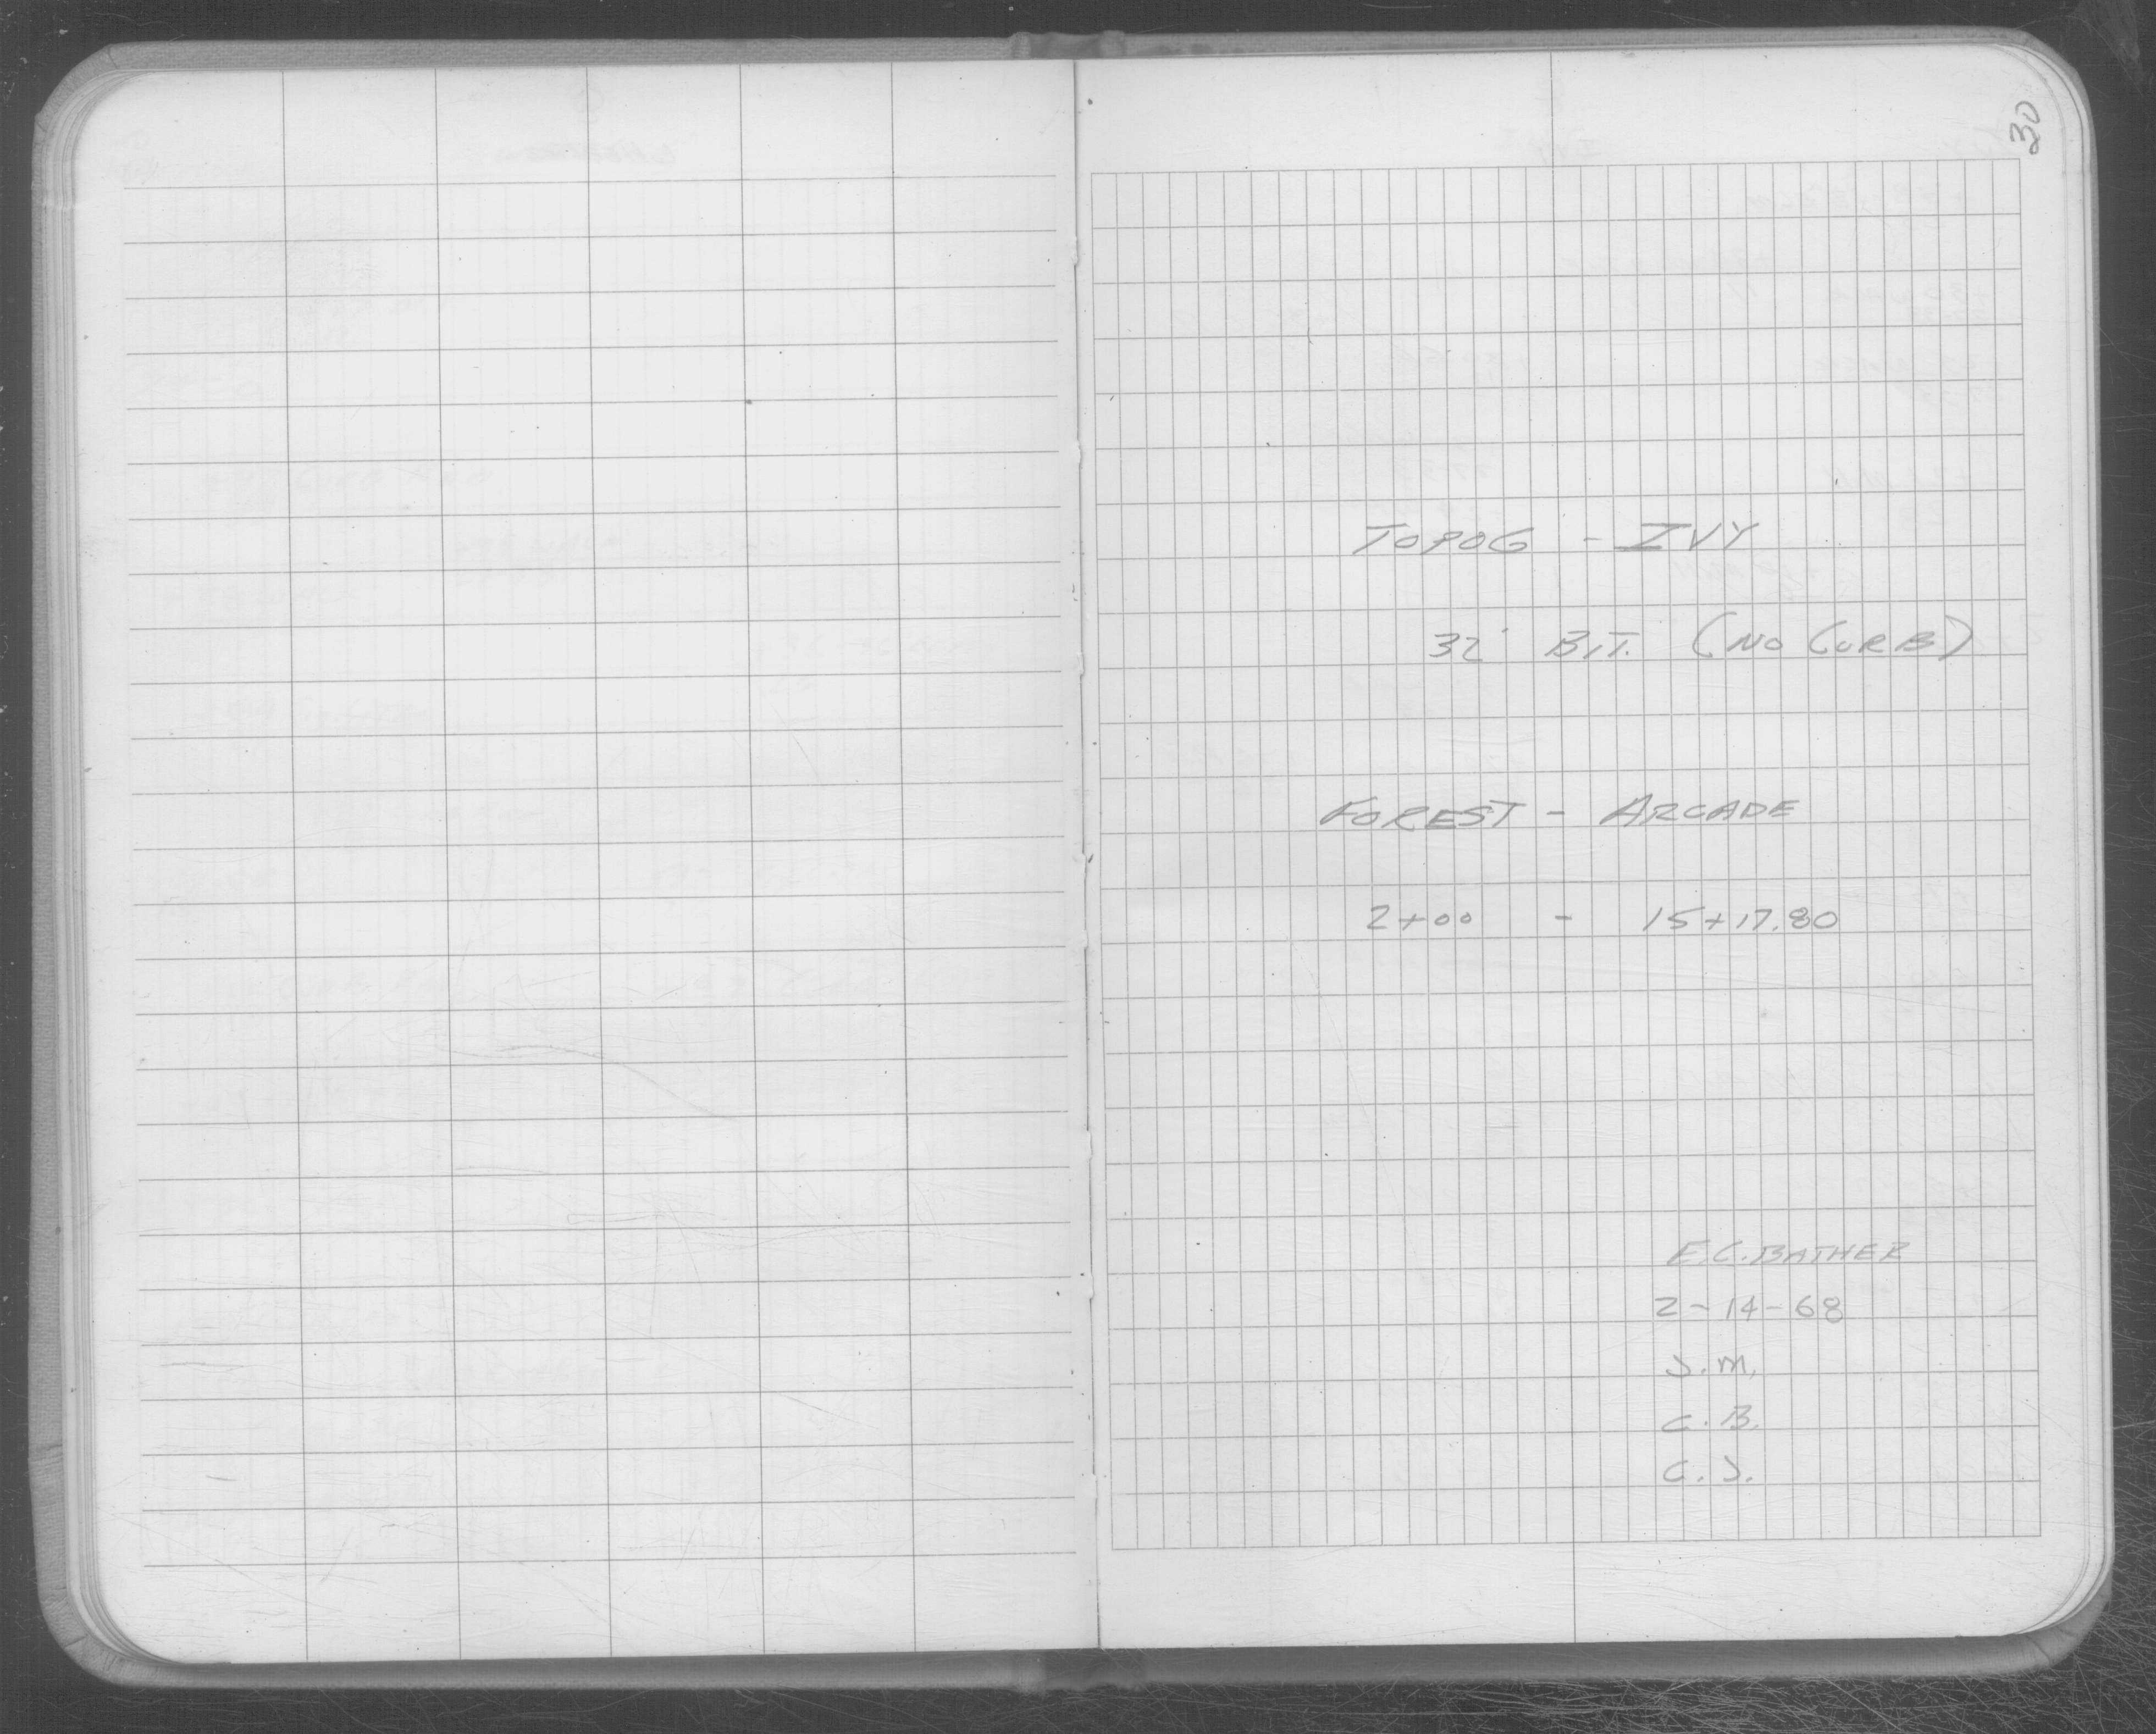 30
TOPOG - IVY
32' BIT. (NO CURB)
FOREST - ARCADE
2+00 - 15+17.80
E.C. BATHER
2-14-68
J.M.
C.B.
C.J.